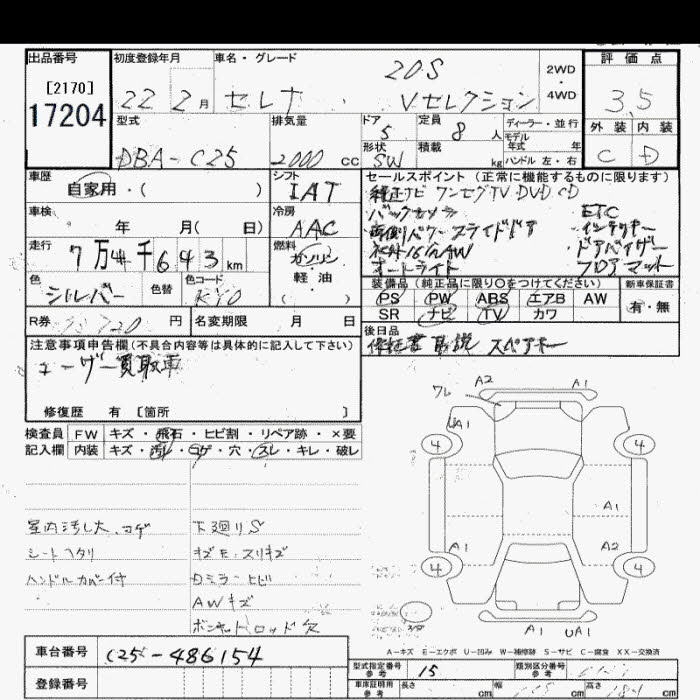 出品番号
[2170]
17204
初度登録年月
22 2月
車名・グレード
20S
セレナ Vセレクション
2WD
・
4WD
評価点
3.5
外装 内装
C D
型式
DBA-C25
排気量
2000 cc
ドア
5
定員
8 人
形状
SW
積載
kg
ディーラー・並行
モデル
年式 年
ハンドル 左・右
車歴
自家用・( )
シフト
IAT
車検
年 月( 日)
冷房
AAC
走行
7万4千643km
燃料
ガソリン
軽油
( )
色
シルバー
色替
色コード
KY0
R券
円
名変期限 月 日
セールスポイント(正常に機能するものに限ります)
純正ナビ ワンセグTV DVD CD
バックカメラ ETC
両側パワースライドドア ・インテリキー
純正16AW ・ドアバイザー
オートライト フロアマット
装備品(純正品に限り○をつけてください)
PS PW ABS エアB AW
SR ナビ TV カワ
新車保証書
有・無
後日品
保証書 取説 スペアキー
注意事項申告欄(不具合内容等は具体的に記入して下さい)
ユーザー買取車
修復歴 有 [箇所 ]
検査員 FW キズ・飛石・ヒビ割・リペア跡・×要
記入欄 内装 キズ・汚れ・コゲ・穴・スレ・キレ・破レ
室内汚し大、コゲ
シートヘタリ
ハンドルカバー付
下廻りS
キズE・スリキズ
Dミラーヒビ
AWキズ
ボンネットロッド欠
ワレ A2 A1
UA1
4 4
A1
A1 A2
4 4
A1 UA1
A-キズ E-エクボ U-凹み W-補修跡 S-サビ C-腐食 XX-交換済
車台番号 C25-486154
登録番号
型式指定番号
参考
15
類別区分番号
参考
車庫証明用
参考
長さ cm 幅 cm 高さ cm